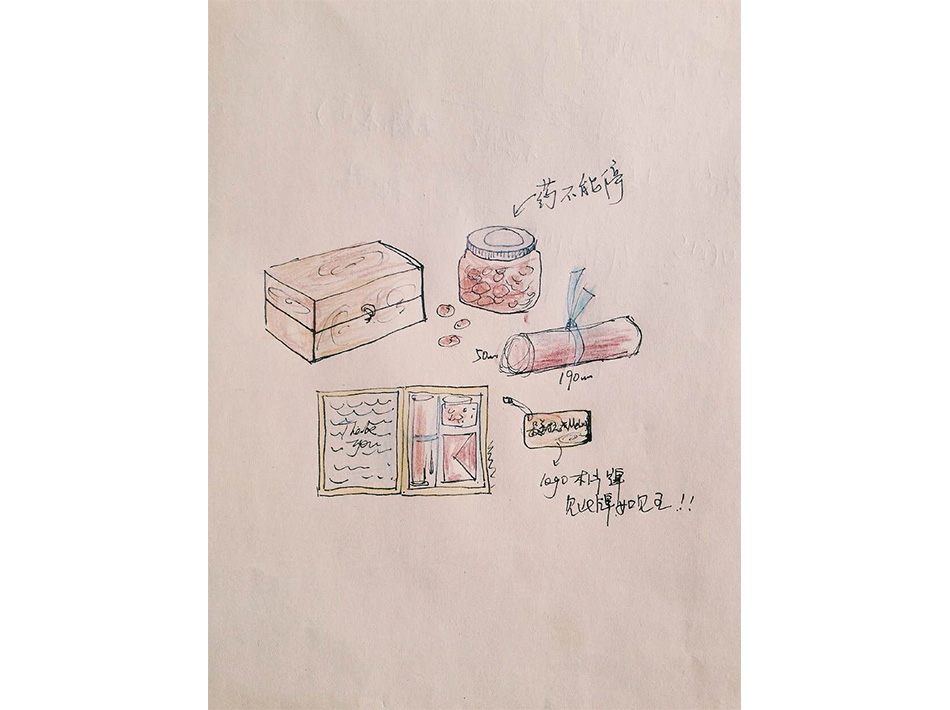 药不能停
50cm
190cm
Thank
you
logo木片牌
见此牌如见王!!